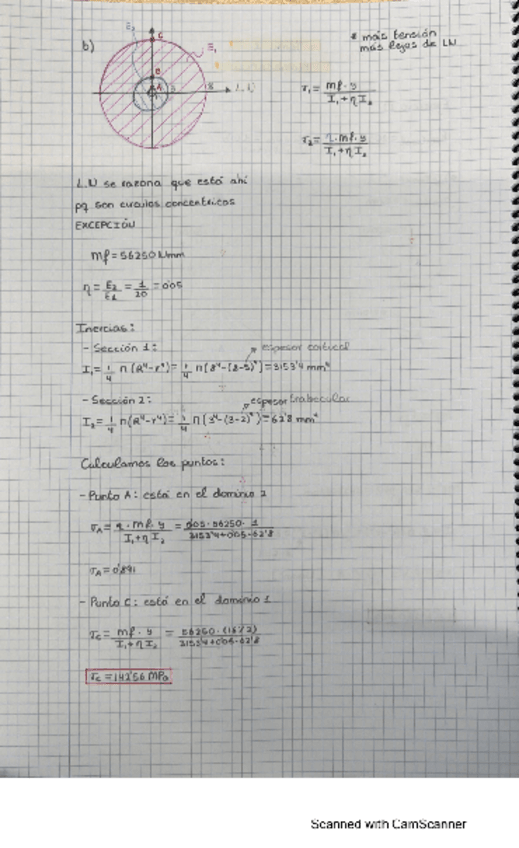 b)
E₂
C
E₁
B
A
3
8
* más tensión
más lejos de LN
σ₁ = mf · y / I₁ + η I₂
σ₂ = η · mf · y / I₁ + η I₂
L.N se razona que está ahí
pq son círculos concéntricos
EXCEPCIÓN
mf = 56250 Nmm
η = E₂/E₁ = 1/20 = 0'05
Inercias:
- Sección 1:
espesor cortical
I₁ = 1/4 π (R⁴ - r⁴) = 1/4 π [8⁴ - (8-5)⁴] = 3153'4 mm⁴
- Sección 2:
espesor trabecular
I₂ = 1/4 π (R⁴ - r⁴) = 1/4 π [3⁴ - (3-2)⁴] = 62'8 mm⁴
Calculamos los puntos:
- Punto A: está en el dominio 2
σA = η · mf · y / I₁ + η I₂ = 0'05 · 56250 · 1 / 3153'4 + 0'05 · 62'8
σA = 0'891
- Punto C: está en el dominio 1
σc = mf · y / I₁ + η I₂ = 56250 · (16/2) / 3153'4 + 0'05 · 62'8
σc = 142'56 MPa
Scanned with CamScanner